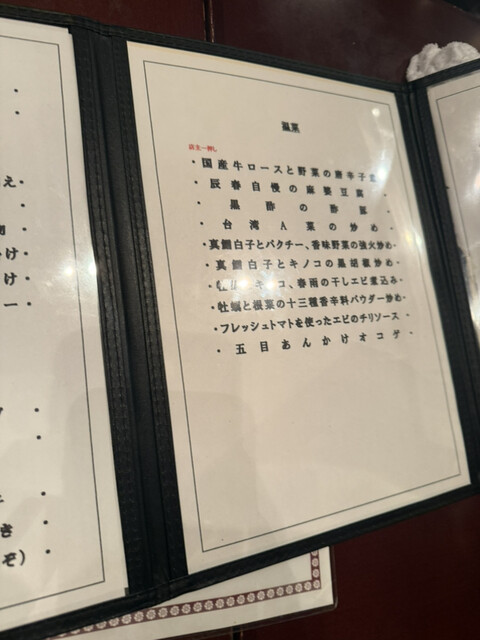 え・
け・
け・
ー・
き・
ぞ)
温菜
店主一押し
・国産牛ロースと野菜の唐辛子煮
・辰春自慢の麻婆豆腐・
・黒酢の酢豚・
・台湾A菜の炒め・
・真鱈白子とパクチー、香味野菜の強火炒め・
・真鱈白子とキノコの黒胡椒炒め・
キノコ、春雨の干しエビ煮込み・
・牡蠣と根菜の十三種香辛料パウダー炒め・
・フレッシュトマトを使ったエビのチリソース・
・五目あんかけオコゲ・